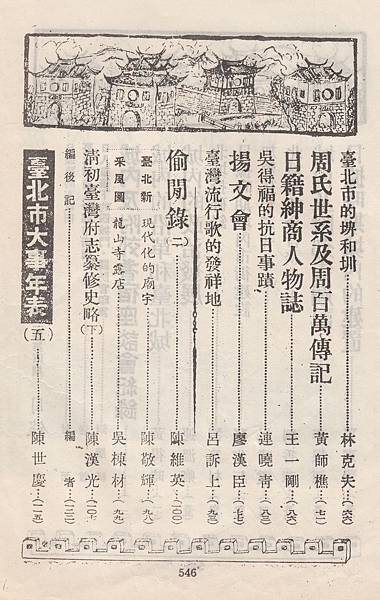 臺北市的埤和圳……林克夫…(六六)
周氏世系及周百萬傳記……黃師樵…(七一)
日籍紳商人物誌……王一剛…(八六)
吳得福的抗日事蹟……連曉青…(八三)
揚文會……廖漢臣…(七七)
臺灣流行歌的發祥地……呂訴上…(九三)
偷閒錄(二)……陳維英…(一〇〇)
臺北新 現代化的廟宇……陳敬輝…(九八)
采風圖 龍山寺露店……吳棟材…(九九)
清初臺灣府志纂修史略(下)……陳漢光…(一〇七)
編後記……編者…(一三二)
臺北市大事年表(五)……陳世慶…(一一五)
546